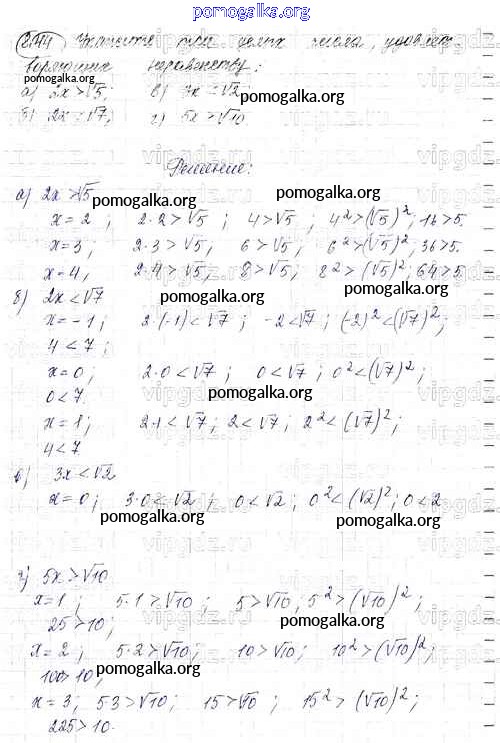 pomogalka.org
244 Укажите три целых числа, удовлет-
воряющих неравенству:
а) 2x > √5; в) 3x < √2;
pomogalka.org
б) 2x < √7; г) 5x > √10.
Решение:
а) 2x > √5
pomogalka.org pomogalka.org
x = 2; 2·2 > √5; 4 > √5; 4² > (√5)²; 16 > 5.
x = 3; 2·3 > √5; 6 > √5; 6² > (√5)²; 36 > 5.
x = 4, 2·4 > √5, 8 > √5; 8² > (√5)²; 64 > 5.
б) 2x < √7 pomogalka.org
x = -1; 2·(-1) < √7; -2 < √7; (-2)² < (√7)²;
4 < 7;
x = 0; 2·0 < √7; 0 < √7; 0² < (√7)²;
0 < 7. pomogalka.org
x = 1; 2·1 < √7; 2 < √7; 2² < (√7)²;
4 < 7
в) 3x < √2
x = 0; 3·0 < √2; 0 < √2; 0² < (√2)²; 0 < 2
pomogalka.org pomogalka.org
г) 5x > √10
x = 1; 5·1 > √10; 5 > √10; 5² > (√10)²;
pomogalka.org
25 > 10;
x = 2; 5·2 > √10; 10 > √10; 10² > (√10)²;
100 > 10; pomogalka.org
x = 3; 5·3 > √10; 15 > √10; 15² > (√10)²;
225 > 10.
pomogalka.org